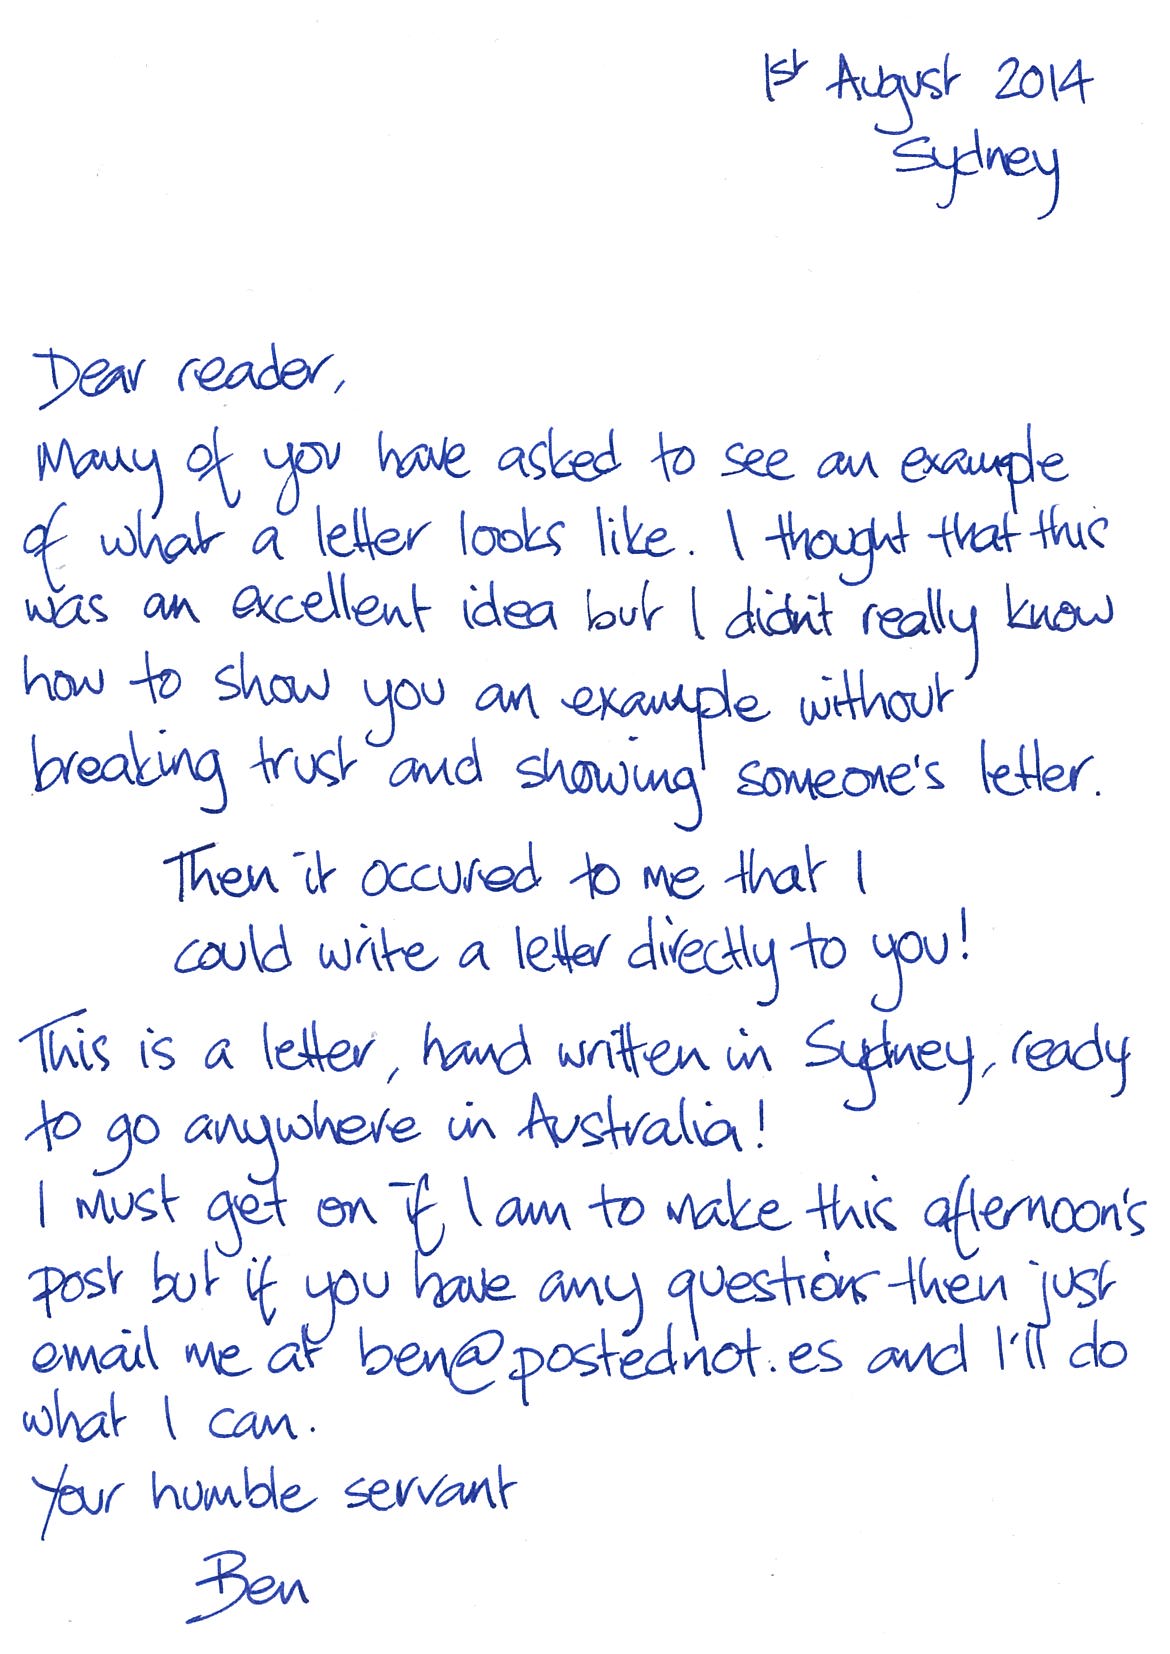 1st August 2014
Sydney
Dear reader,
Many of you have asked to see an example
of what a letter looks like. I thought that this
was an excellent idea but I didn't really know
how to show you an example without
breaking trust and showing someone's letter.
Then it occured to me that I
could write a letter directly to you!
This is a letter, hand written in Sydney, ready
to go anywhere in Australia!
I must get on if I am to make this afternoon's
post but if you have any questions then just
email me at ben@postednot.es and I'll do
what I can.
Your humble servant
Ben